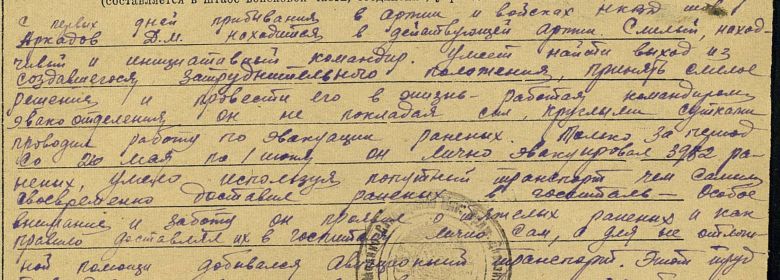 (составляется в штабе войсковой части,
С первых дней пребывания в армии и войсках НКВД
Аркадов Д.М. находится в действующей армии. Смелый, наход-
чивый и инициативный командир. Умеет найти выход из
создавшегося затруднительного положения, принять смелое
решения и провести его в жизнь. Работая командиром
эвакоотделения, он не покладая сил, круглыми сутками
проводил работу по эвакуации раненых. Только за период
со 20 мая по 1 июня он лично эвакуировал 3982 ра-
неных, умело используя попутный транспорт чем самым
своевременно доставил раненых в госпиталь – особое
внимание и заботу он проявил о тяжелых раненых и как
правило доставлял их в госпиталь лично сам, а для не отлож-
ной помощи добивался авиационный транспорт. Этот труд